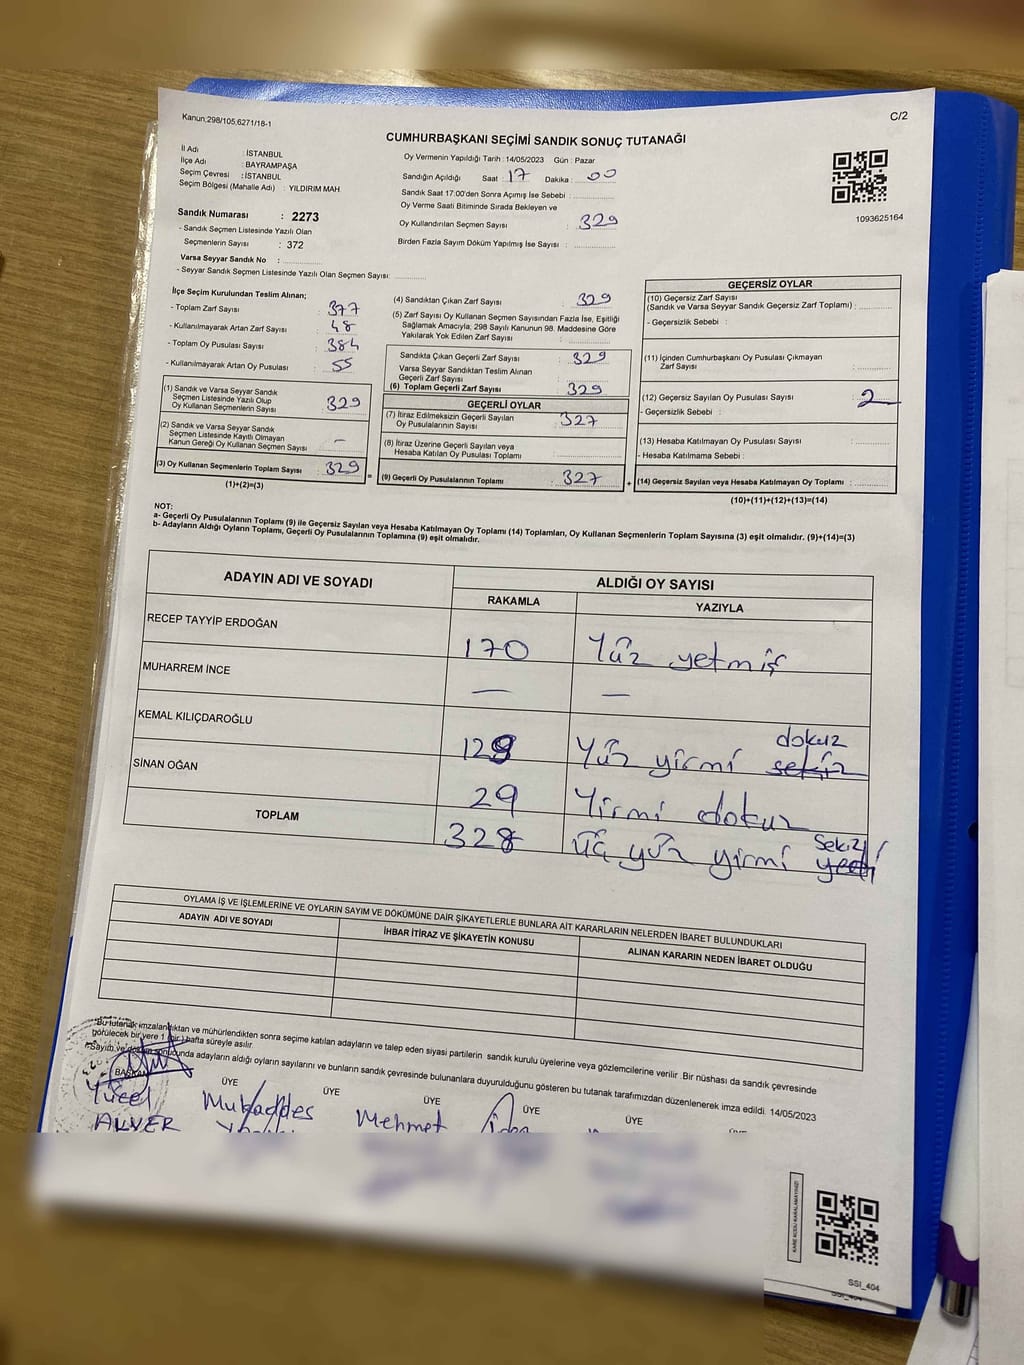 Kanun;298/105,6271/18-1
C/2
CUMHURBAŞKANI SEÇİMİ SANDIK SONUÇ TUTANAĞI
İl Adı : İSTANBUL
İlçe Adı : BAYRAMPAŞA
Seçim Çevresi : İSTANBUL
Seçim Bölgesi (Mahalle Adı) : YILDIRIM MAH.
Oy Vermenin Yapıldığı Tarih : 14/05/2023 Gün : Pazar
Sandığın Açıldığı Saat : 17 Dakika : 00
Sandık Saat 17:00'den Sonra Açımış İse Sebebi :
Oy Verme Saati Bitiminde Sırada Bekleyen ve
Oy Kullandırılan Seçmen Sayısı : 329
Birden Fazla Sayım Döküm Yapılmış İse Sayısı :
1093625164
Sandık Numarası : 2273
- Sandık Seçmen Listesinde Yazılı Olan
Seçmenlerin Sayısı : 372
Varsa Seyyar Sandık No :
- Seyyar Sandık Seçmen Listesinde Yazılı Olan Seçmen Sayısı:
İlçe Seçim Kurulundan Teslim Alınan;
- Toplam Zarf Sayısı : 377
- Kullanılmayarak Artan Zarf Sayısı : 48
- Toplam Oy Pusulası Sayısı : 384
- Kullanılmayarak Artan Oy Pusulası : 55
(1) Sandık ve Varsa Seyyar Sandık
Seçmen Listesinde Yazılı Olup
Oy Kullanan Seçmenlerin Sayısı : 329
(2) Sandık ve Varsa Seyyar Sandık
Seçmen Listesinde Kayıtlı Olmayan
Kanun Gereği Oy Kullanan Seçmen Sayısı : –
(3) Oy Kullanan Seçmenlerin Toplam Sayısı : 329
(1)+(2)=(3)
(4) Sandıktan Çıkan Zarf Sayısı : 329
(5) Zarf Sayısı Oy Kullanan Seçmen Sayısından Fazla İse, Eşitliği
Sağlamak Amacıyla, 298 Sayılı Kanunun 98. Maddesine Göre
Yakılarak Yok Edilen Zarf Sayısı :
Sandıkta Çıkan Geçerli Zarf Sayısı : 329
Varsa Seyyar Sandıktan Teslim Alınan
Geçerli Zarf Sayısı :
(6) Toplam Geçerli Zarf Sayısı : 329
GEÇERLİ OYLAR
(7) İtiraz Edilmeksizin Geçerli Sayılan
Oy Pusulalarının Sayısı : 327
(8) İtiraz Üzerine Geçerli Sayılan veya
Hesaba Katılan Oy Pusulası Toplamı :
= (9) Geçerli Oy Pusulalarının Toplamı : 327 +
GEÇERSİZ OYLAR
(10) Geçersiz Zarf Sayısı
(Sandık ve Varsa Seyyar Sandık Geçersiz Zarf Toplamı) :
- Geçersizlik Sebebi :
(11) İçinden Cumhurbaşkanı Oy Pusulası Çıkmayan
Zarf Sayısı :
(12) Geçersiz Sayılan Oy Pusulası Sayısı : 2
- Geçersizlik Sebebi :
(13) Hesaba Katılmayan Oy Pusulası Sayısı :
- Hesaba Katılmama Sebebi :
(14) Geçersiz Sayılan veya Hesaba Katılmayan Oy Toplamı :
(10)+(11)+(12)+(13)=(14)
NOT:
a- Geçerli Oy Pusulalarının Toplamı (9) ile Geçersiz Sayılan veya Hesaba Katılmayan Oy Toplamı (14) Toplamları, Oy Kullanan Seçmenlerin Toplam Sayısına (3) eşit olmalıdır. (9)+(14)=(3)
b- Adayların Aldığı Oyların Toplamı, Geçerli Oy Pusulalarının Toplamına (9) eşit olmalıdır.
ADAYIN ADI VE SOYADI
ALDIĞI OY SAYISI
RAKAMLA YAZIYLA
RECEP TAYYİP ERDOĞAN 170 Yüz yetmiş
MUHARREM İNCE — —
KEMAL KILIÇDAROĞLU 129 Yüz yirmi sekiz dokuz
SİNAN OĞAN 29 Yirmi dokuz
TOPLAM 328 üç yüz yirmi yedi sekiz
OYLAMA İŞ VE İŞLEMLERİNE VE OYLARIN SAYIM VE DÖKÜMÜNE DAİR ŞİKAYETLERLE BUNLARA AİT KARARLARIN NELERDEN İBARET BULUNDUKLARI
ADAYIN ADI VE SOYADI
İHBAR İTİRAZ VE ŞİKAYETİN KONUSU
ALINAN KARARIN NEDEN İBARET OLDUĞU
Bu tutanak imzalandıktan ve mühürlendikten sonra seçime katılan adayların ve talep eden siyasi partilerin sandık kurulu üyelerine veya gözlemcilerine verilir .Bir nüshası da sandık çevresinde
görülecek bir yere 1 (bir) hafta süreyle asılır.
Sayım ve döküm sonucunda adayların aldığı oyların sayılarını ve bunların sandık çevresinde bulunanlara duyurulduğunu gösteren bu tutanak tarafımızdan düzenlenerek imza edildi. 14/05/2023
BAŞKAN ÜYE ÜYE ÜYE ÜYE ÜYE
Yücel Mukaddes Mehmet
ALVER
KARE KODU KARALAMAYINIZ!
SSI_404
SSI_404